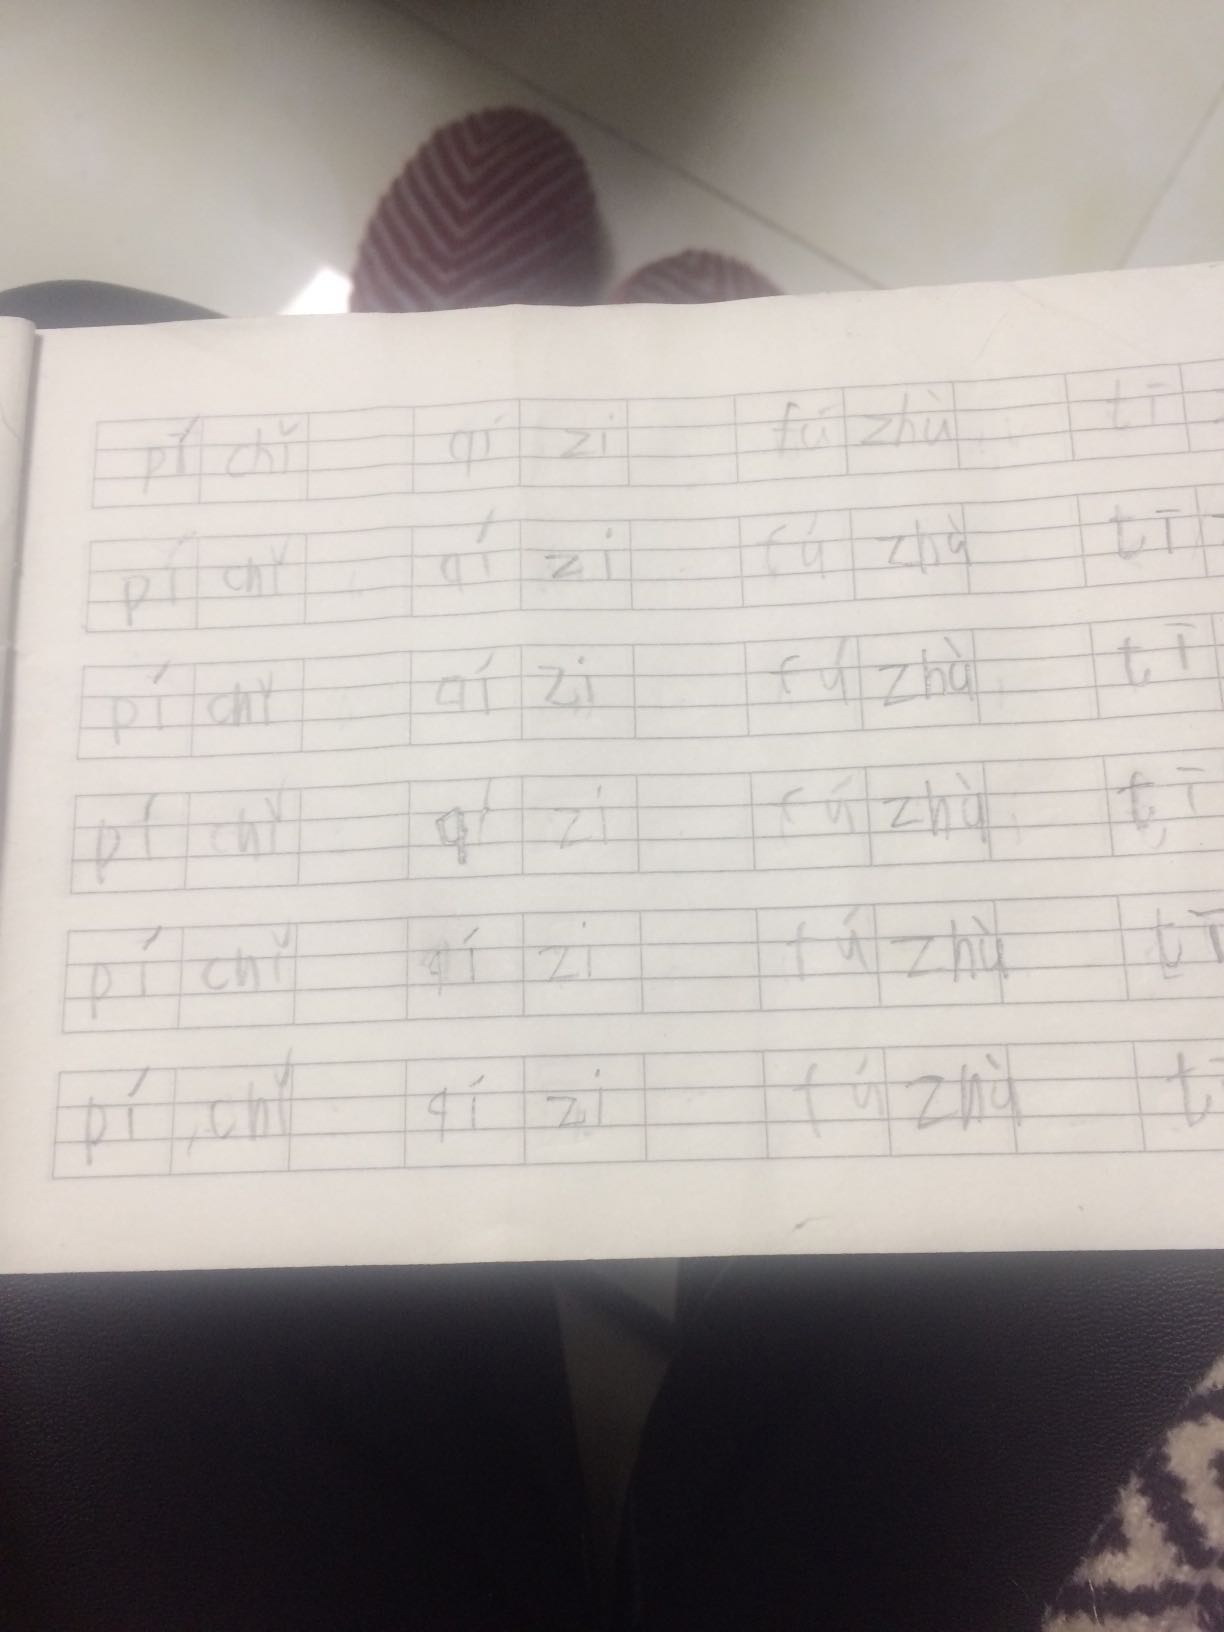 pí chǐ qí zi fú zhù tī
pí chǐ qí zi fú zhù tī
pí chǐ qí zi fú zhù tī
pí chǐ qí zi fú zhù tī
pí chǐ qí zi fú zhù tī
pí chǐ qí zi fú zhù tī